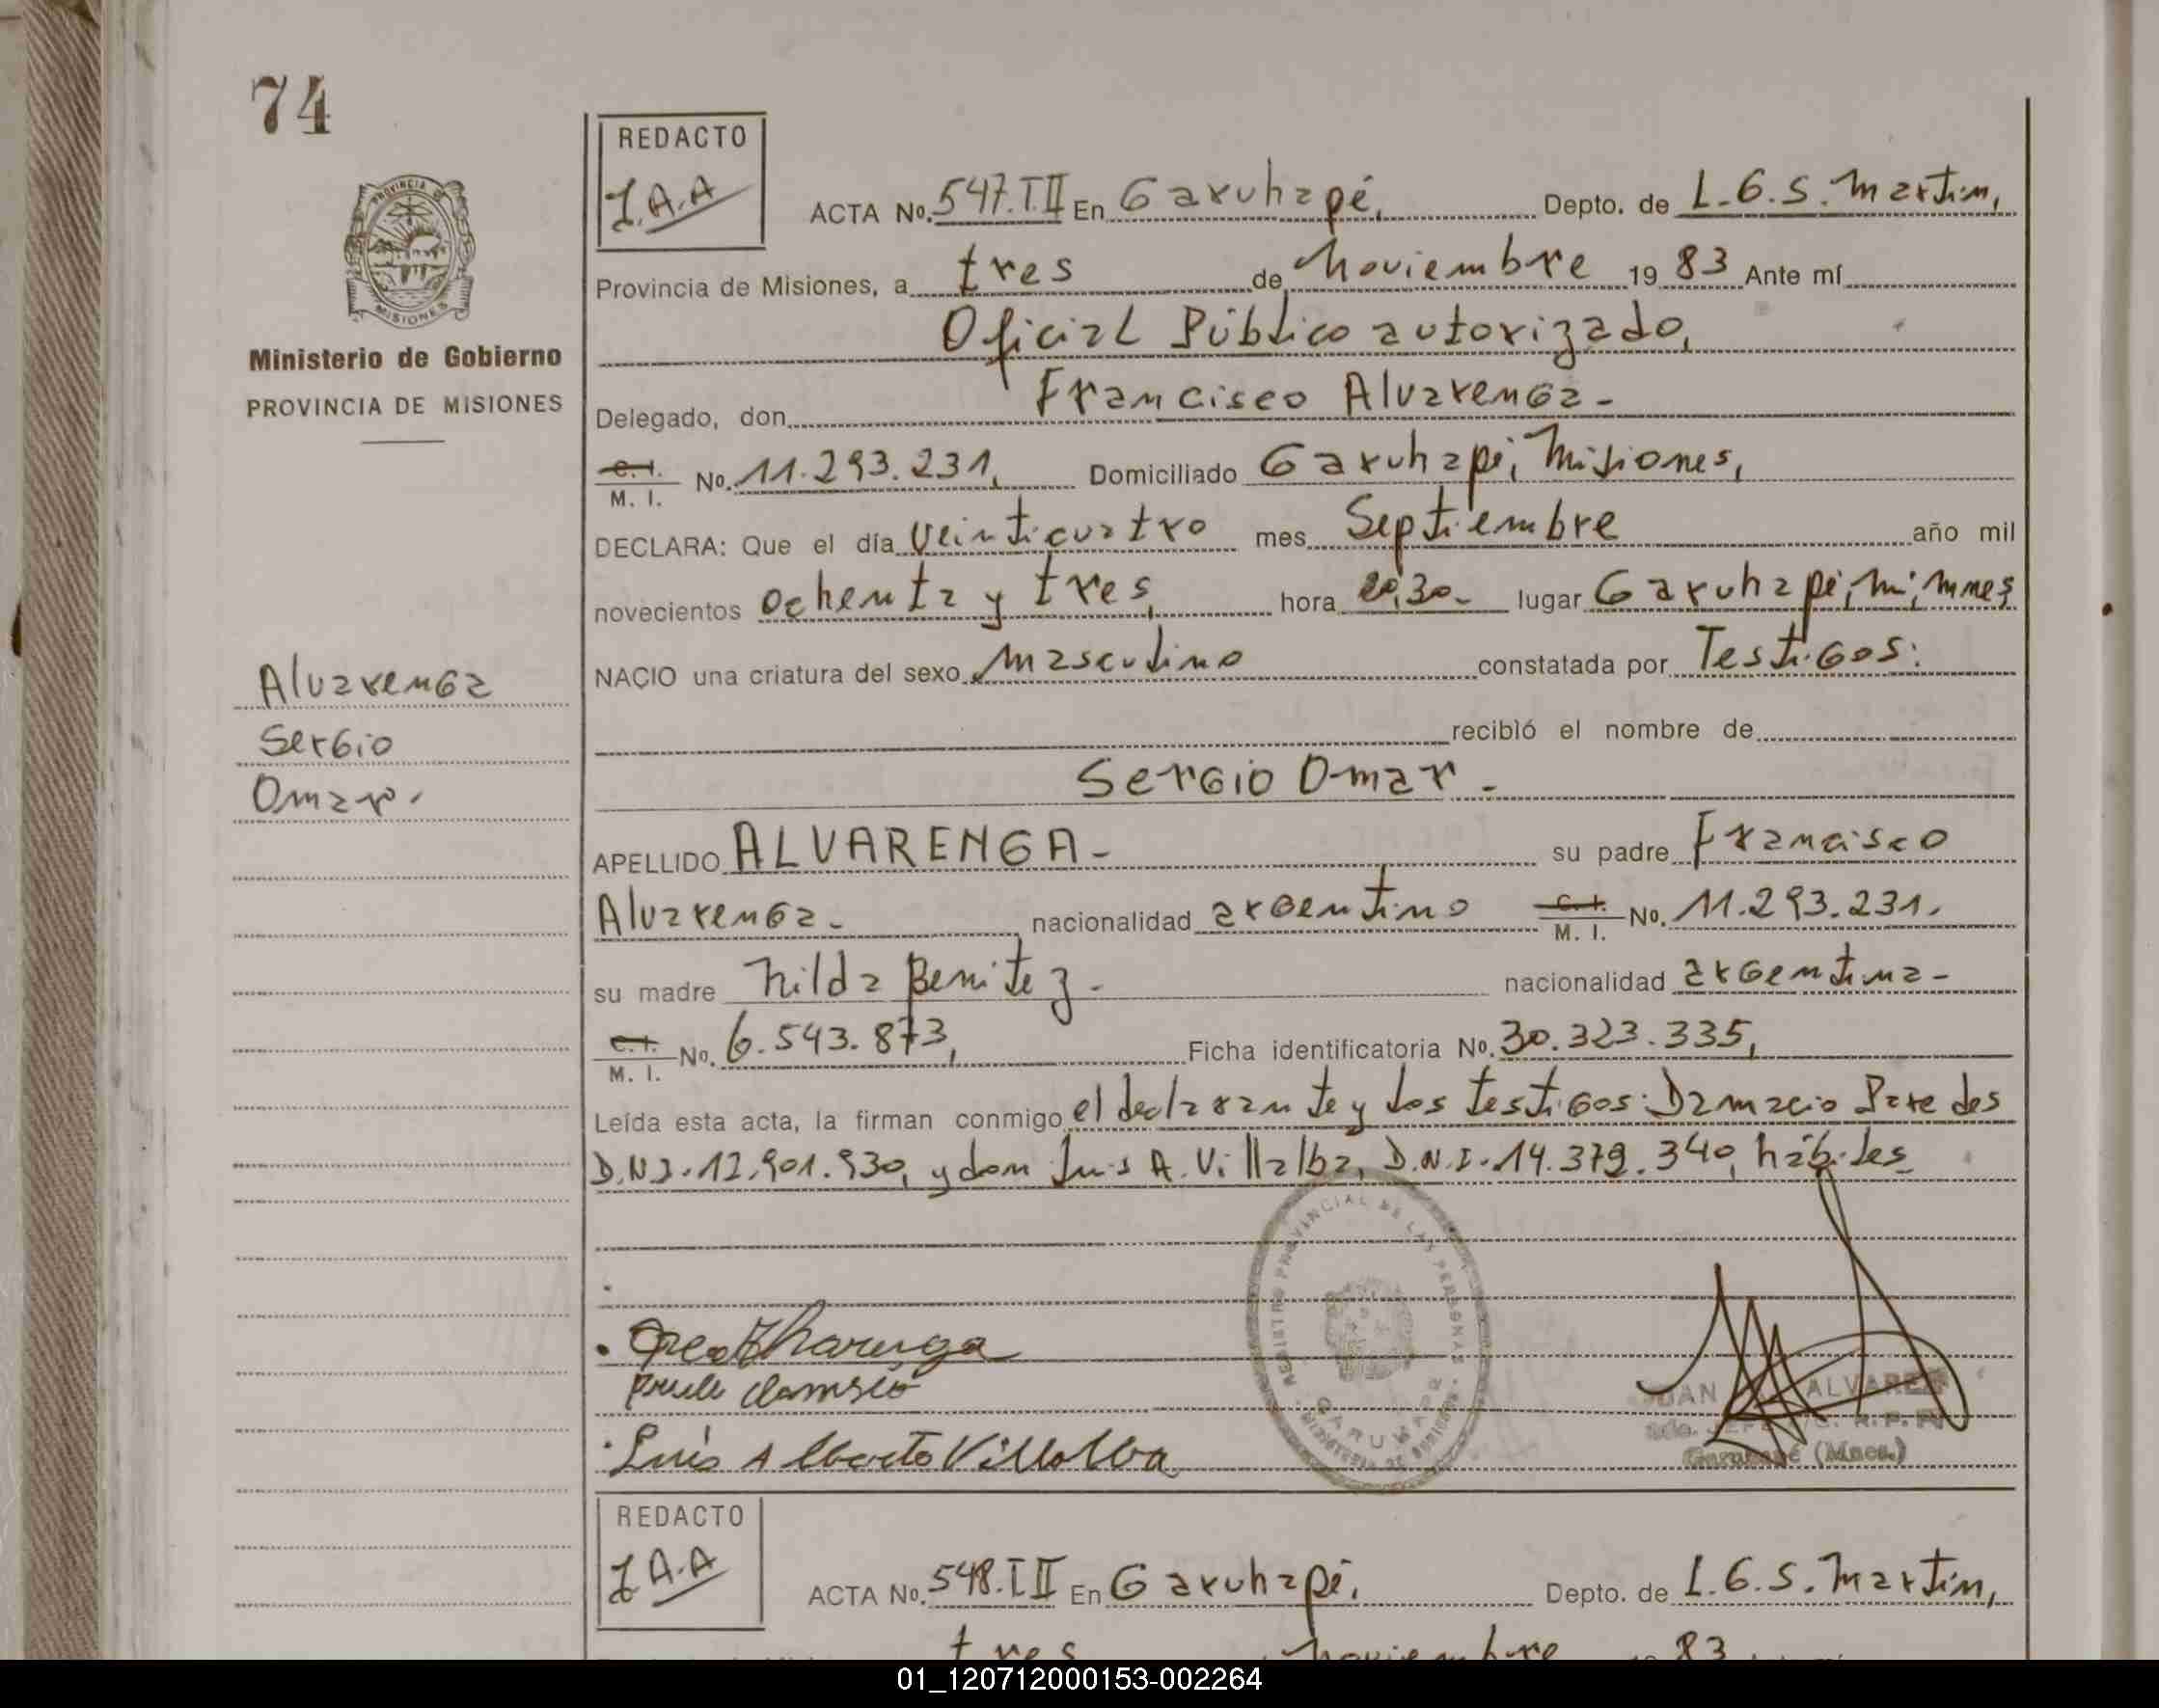 74
PROVINCIA DE
MISIONES
Ministerio de Gobierno
PROVINCIA DE MISIONES
Alvarenga
Sergio
Omar.
REDACTO
J.A.A
ACTA No. 547.T.II En Garuhapé, Depto. de L.G.S. Martin,
Provincia de Misiones, a tres de Noviembre 1983 Ante mí
Oficial Público autorizado,
Delegado, don Francisco Alvarenga-
C. I.
M. I. No. 11.293.231, Domiciliado Garuhapé, Misiones,
DECLARA: Que el día veinticuatro mes Septiembre año mil
novecientos ochenta y tres, hora 20,30- lugar Garuhapé,
NACIO una criatura del sexo Masculino constatada por Testigos:
recibió el nombre de
Sergio Omar-
APELLIDO ALVARENGA- su padre Francisco
Alvarenga- nacionalidad argentino C. I.
M. I. No. 11.293.231.
su madre Nilda Benitez- nacionalidad argentina-
C. I.
M. I. No. 6.543.873, Ficha identificatoria No. 30.323.335,
Leída esta acta, la firman conmigo el declarante y los testigos: Damacio Paredes
D.N.I. 12.901.930, y don Luis A. Villalba, D.N.I. 14.379.340, hábiles
REGISTRO PROVINCIAL DE LAS PERSONAS
Luis Alberto Villalba
JUAN ALVAREZ
(Mnes.)
REDACTO
J.A.A
ACTA No. 548.T.II En Garuhapé, Depto. de L.G.S. Martin,
tres noviembre 83
01_120712000153-002264